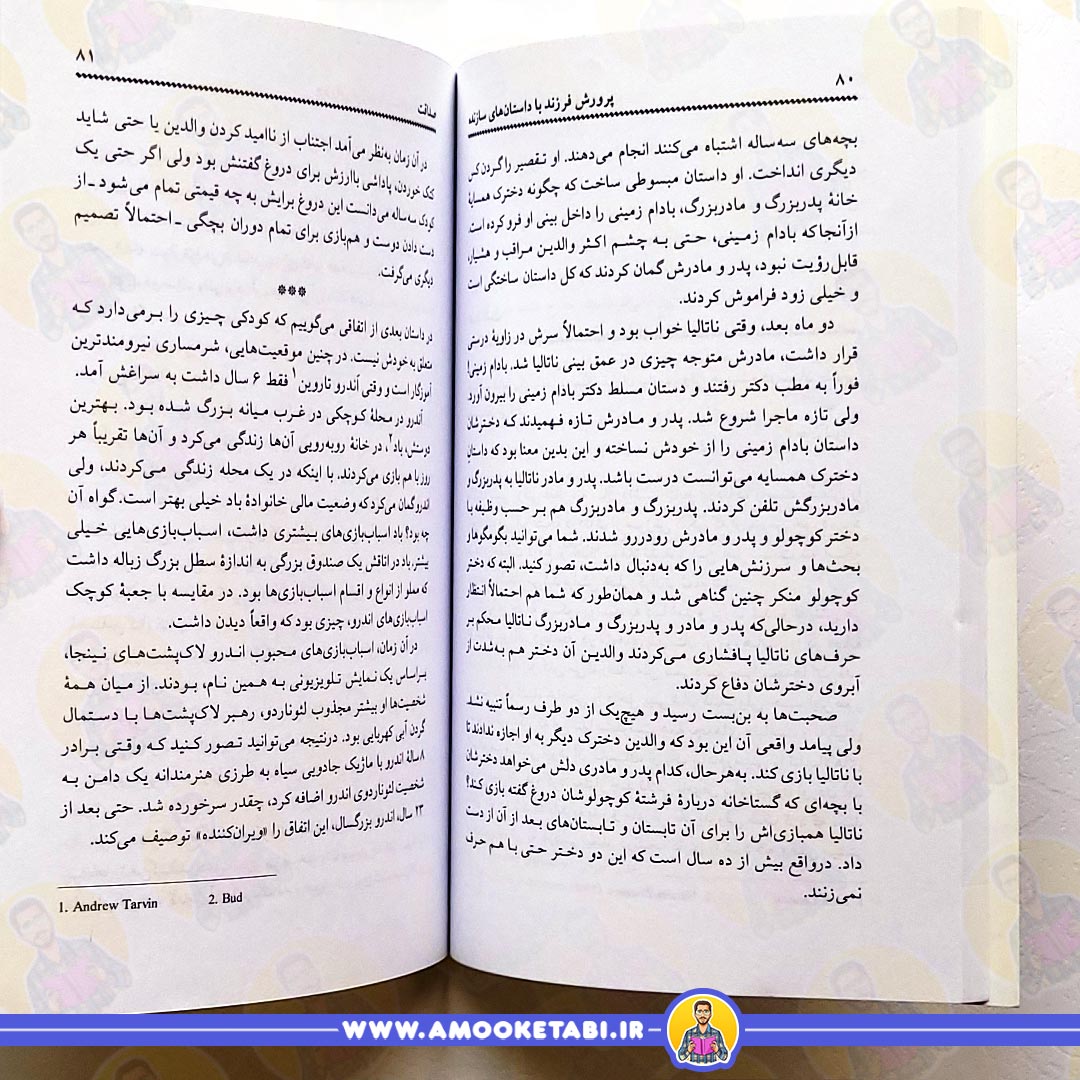 ۸۰
پرورش فرزند با داستان‌های سازنده
بچه‌های سه‌ساله اشتباه می‌کنند انجام می‌دهند. او تقصیر را گردن کس
دیگری انداخت. او داستان مبسوطی ساخت که چگونه دخترک همسایهٔ
خانهٔ پدربزرگ و مادربزرگ، بادام زمینی را داخل بینی او فرو کرده است.
ازآنجاکه بادام زمینی، حتی به چشم اکثر والدین مراقب و هشیار،
قابل‌رؤیت نبود، پدر و مادرش گمان کردند که کل داستان ساختگی است
و خیلی زود فراموش کردند.
دو ماه بعد، وقتی ناتالیا خواب بود و احتمالاً سرش در زاویهٔ درستی
قرار داشت، مادرش متوجه چیزی در عمق بینی ناتالیا شد. بادام زمینی!
فوراً به مطب دکتر رفتند و دستان مسلط دکتر بادام زمینی را بیرون آورد.
ولی تازه ماجرا شروع شد. پدر و مادرش تازه فهمیدند که دخترشان
داستان بادام زمینی را از خودش نساخته و این بدین معنا بود که داستان
دخترک همسایه می‌توانست درست باشد. پدر و مادر ناتالیا به پدربزرگ و
مادربزرگش تلفن کردند. پدربزرگ و مادربزرگ هم بر حسب وظیفه با
دختر کوچولو و پدر و مادرش رودررو شدند. شما می‌توانید بگومگوها و
بحث‌ها و سرزنش‌هایی را که به‌دنبال داشت، تصور کنید. البته که دختر
کوچولو منکر چنین گناهی شد و همان‌طور که شما هم احتمالاً انتظار
دارید، درحالی‌که پدر و مادر و پدربزرگ و مادربزرگ ناتالیا محکم بر
حرف‌های ناتالیا پافشاری می‌کردند والدین آن دختر هم به‌شدت از
آبروی دخترشان دفاع کردند.
صحبت‌ها به بن‌بست رسید و هیچ‌یک از دو طرف رسماً تنبیه نشد
ولی پیامد واقعی آن این بود که والدین دخترک دیگر به او اجازه ندادند تا
با ناتالیا بازی کند. به‌هرحال، کدام پدر و مادری دلش می‌خواهد دخترشان
با بچه‌ای که گستاخانه دربارهٔ فرشتهٔ کوچولوشان دروغ گفته بازی کند؟
ناتالیا همبازی‌اش را برای آن تابستان و تابستان‌های بعد از آن از دست
داد. درواقع بیش از ده سال است که این دو دختر حتی با هم حرف
نمی‌زنند.
۸۱
صداقت
در آن زمان به‌نظر می‌آمد اجتناب از ناامید کردن والدین یا حتی شاید
کتک خوردن، پاداشی باارزش برای دروغ گفتنش بود ولی اگر حتی یک
کودک سه‌ساله می‌دانست این دروغ برایش به چه قیمتی تمام می‌شود ـ از
دست دادن دوست و هم‌بازی برای تمام دوران بچگی ـ احتمالاً تصمیم
دیگری می‌گرفت.
***
در داستان بعدی از اتفاقی می‌گوییم که کودکی چیزی را برمی‌دارد که
متعلق به خودش نیست. در چنین موقعیت‌هایی، شرمساری نیرومندترین
آموزگار است و وقتی اَندرو تاروین۱ فقط ۶ سال داشت به سراغش آمد.
اَندرو در محلهٔ کوچکی در غرب میانه بزرگ شده بود. بهترین
دوستش، باد۲، در خانهٔ روبه‌رویی آن‌ها زندگی می‌کرد و آن‌ها تقریباً هر
روز با هم بازی می‌کردند. با اینکه در یک محله زندگی می‌کردند، ولی
اندرو گمان می‌کرد که وضعیت مالی خانوادهٔ باد خیلی بهتر است. گواه آن
چه بود؟ باد اسباب‌بازی‌های بیشتری داشت، اسباب‌بازی‌هایی خیلی
بیشتر. باد در اتاقش یک صندوق بزرگی به اندازهٔ سطل بزرگ زباله داشت
که مملو از انواع و اقسام اسباب‌بازی‌ها بود. در مقایسه با جعبهٔ کوچک
اسباب‌بازی‌های اندرو، چیزی بود که واقعاً دیدن داشت.
در آن زمان، اسباب‌بازی‌های محبوب اندرو لاک‌پشت‌های نینجا،
براساس یک نمایش تلویزیونی به همین نام، بودند. از میان همهٔ
شخصیت‌ها او بیشتر مجذوب لئوناردو، رهبر لاک‌پشت‌ها با دستمال
گردن آبی کهربایی بود. درنتیجه می‌توانید تصور کنید که وقتی برادر
۸ سالهٔ اندرو با ماژیک جادویی سیاه به طرزی هنرمندانه یک دامن به
شخصیت لئوناردوی اندرو اضافه کرد، چقدر سرخورده شد. حتی بعد از
۲۳ سال، اندرو بزرگسال، این اتفاق را «ویران‌کننده» توصیف می‌کند.
1. Andrew Tarvin 2. Bud
WWW.AMOOKETABI.IR